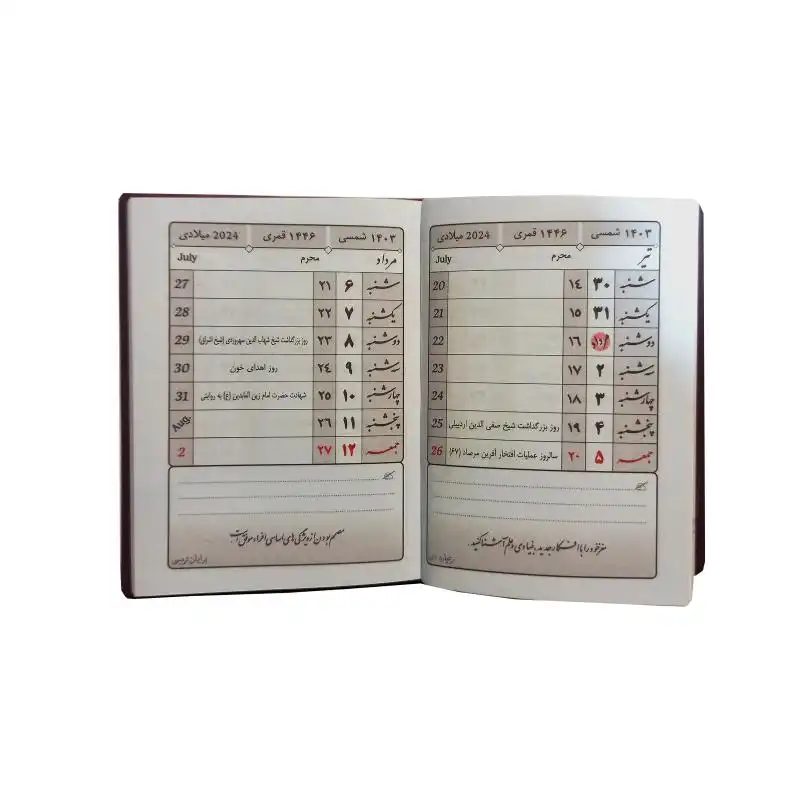 ۱۴۰۳ شمسی ۱۴۴۶ قمری 2024 میلادی
تیر محرم July
شنبه ۳۰ ۱۴ 20
یکشنبه ۳۱ ۱۵ 21
دوشنبه مرداد ۱۶ 22
سه‌شنبه ۲ ۱۷ 23
چهارشنبه ۳ ۱۸ 24
پنجشنبه ۴ ۱۹ روز بزرگداشت شیخ صفی الدین اردبیلی 25
جمعه ۵ ۲۰ سالروز عملیات افتخار آفرین مرصاد (۶۷) 26
مغز خود را با افکار جدید، بنیادی و علم آشنا کنید.
۱۴۰۳ شمسی ۱۴۴۶ قمری 2024 میلادی
مرداد محرم July
شنبه ۶ ۲۱ 27
یکشنبه ۷ ۲۲ 28
دوشنبه ۸ ۲۳ روز بزرگداشت شیخ شهاب الدین سهروردی (شیخ اشراق) 29
سه‌شنبه ۹ ۲۴ روز اهدای خون 30
چهارشنبه ۱۰ ۲۵ شهادت حضرت امام زین العابدین (ع) به روایتی 31
پنجشنبه ۱۱ ۲۶ Aug.
جمعه ۱۲ ۲۷ 2
مصمم بودن از ویژگی های اساسی افراد موفق است
برایان تریسی